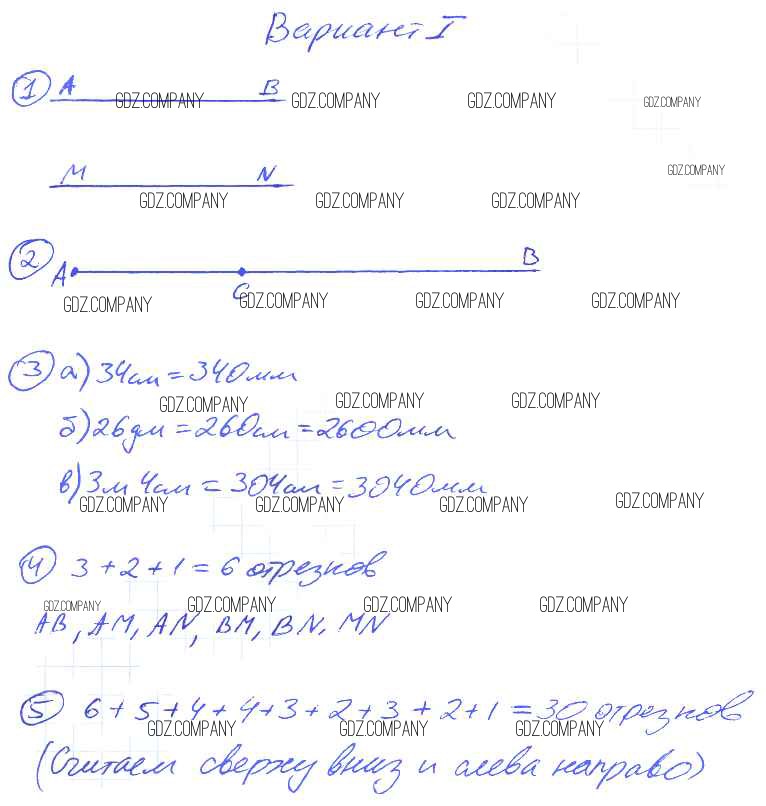 Вариант I
1 A B
GDZ.COMPANY GDZ.COMPANY GDZ.COMPANY GDZ.COMPANY
M N
GDZ.COMPANY
GDZ.COMPANY GDZ.COMPANY GDZ.COMPANY
2 A C B
GDZ.COMPANY GDZ.COMPANY GDZ.COMPANY GDZ.COMPANY
3 а) 34см = 340мм
GDZ.COMPANY GDZ.COMPANY GDZ.COMPANY
б) 26дм = 260см = 2600мм
в) 3м 4см = 304см = 3040мм
GDZ.COMPANY GDZ.COMPANY GDZ.COMPANY GDZ.COMPANY
4 3 + 2 + 1 = 6 отрезков
GDZ.COMPANY GDZ.COMPANY GDZ.COMPANY GDZ.COMPANY
AB, AM, AN, BM, BN, MN
5 6 + 5 + 4 + 4 + 3 + 2 + 3 + 2 + 1 = 30 отрезков
GDZ.COMPANY GDZ.COMPANY GDZ.COMPANY
(Считаем сверху вниз и слева направо)